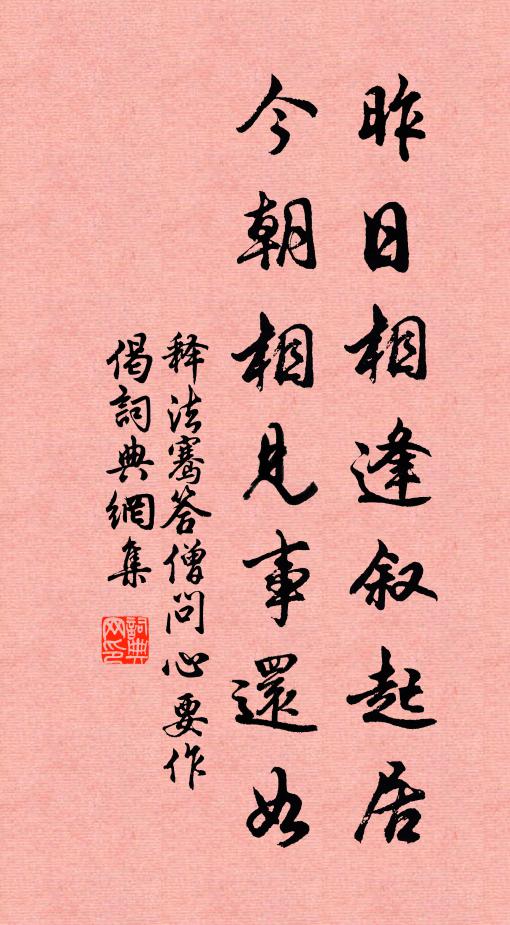 昨日相逢叙起居
今朝相見事還如
释法骞答僧问心要作
偈詞典網集
詞典网印